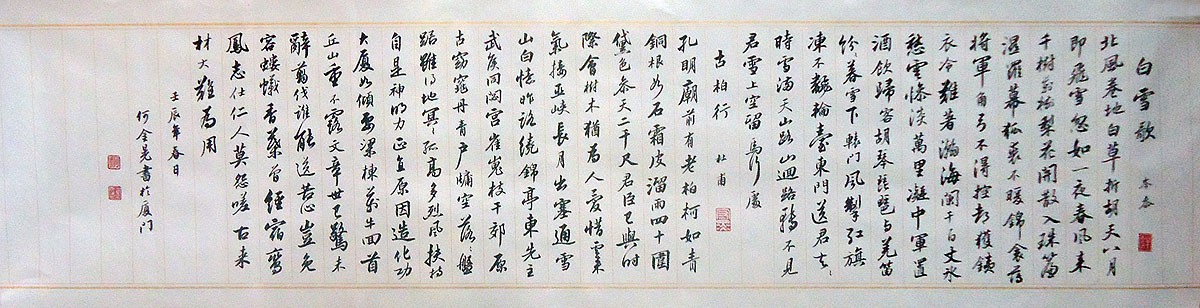 白雪歌 岑参
北風卷地白草折胡天八月
即飛雪忽如一夜春風来
千樹萬樹梨花開散入珠簾
濕羅幕狐裘不暖錦衾薄
将軍角弓不得控都護鐵
衣冷難著瀚海闌干百丈冰
愁雲惨淡萬里凝中軍置
酒飲歸客胡琴琵琶与羌笛
紛々暮雪下轅門風掣红旗
凍不翻輪臺東門送君去々
時雪满天山路山迴路轉不見
君雪上空留馬行處
古柏行 杜甫
孔明廟前有老柏柯如青
銅根如石霜皮溜雨四十圍
黛色参天二千尺君臣已與时
際會樹木猶為人愛惜雲来
氣接巫峡長月出寒通雪
山白憶昨路繞錦亭東先主
武侯同閟宫崔嵬枝干郊原
古窈窕丹青户牖空落々盤
踞雖得地冥々孤高多烈風扶持
自是神明力正直原因造化功
大廈如傾要梁棟萬牛回首
丘山重不露文章世已驚未
辭剪伐誰能送苦心豈免
容螻蟻香葉曾經宿鸞
鳳志仕仁人莫怨嗟古来
材大難為用
壬辰年春日
何金晃書於厦门